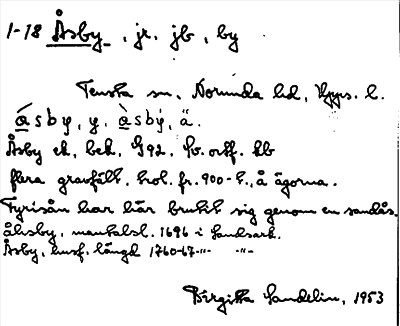 1-18 Åsby, jr, jb, by
Tensta sn, Norunda hd, Upps. l.
åsby, y, åsby, ä.
Åsby ek, bek, G92, Sv. ortf. kb
flera gravfält, trol. fr. 900-t., å ägorna.
Fyrisån har här brutit sig genom en sandås.
åhsby, mantalsl. 1696 i Landsark.
Åsby, husf. längd 1760-67 -"- -"-
Birgitta Sandelin, 1953